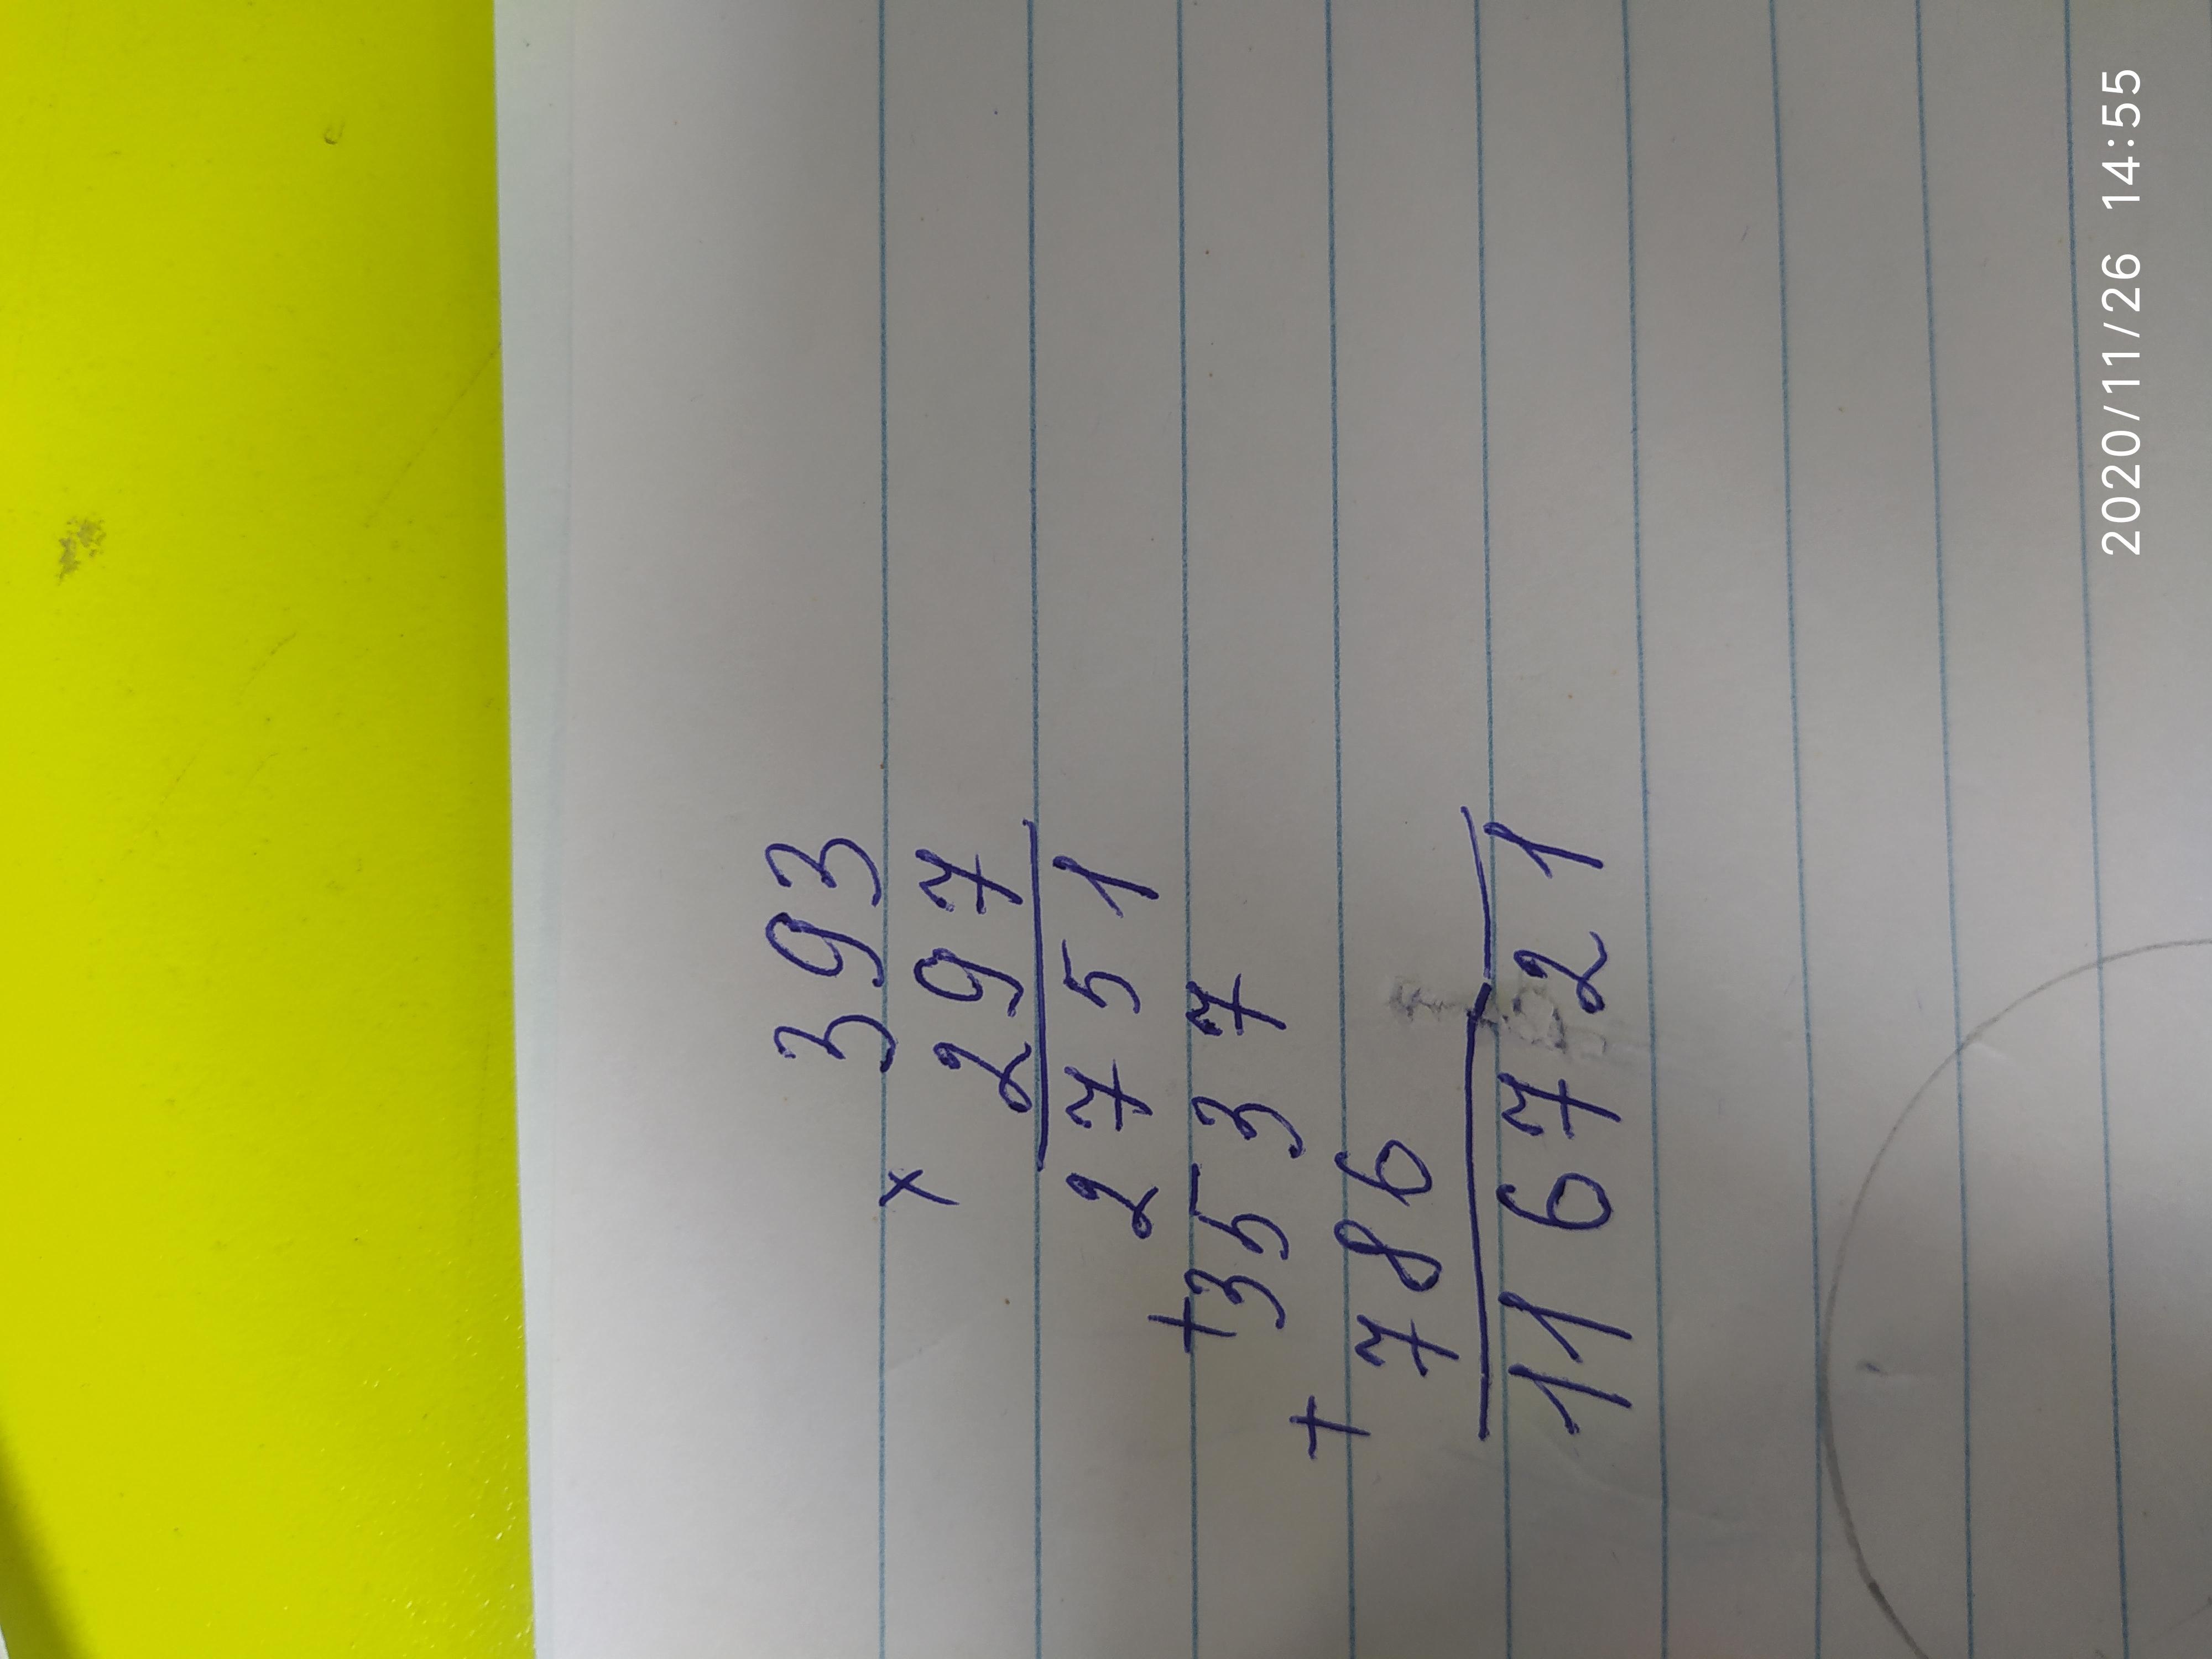 393
× 297
2751
+3537
+ 786
116721
2020/11/26 14:55